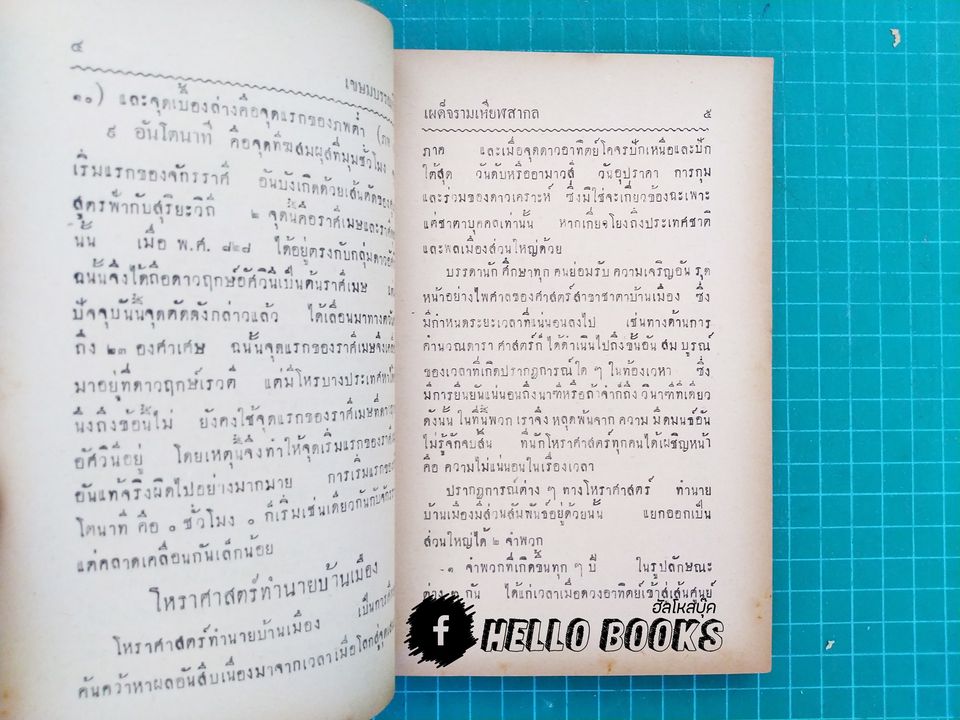 ๔
เขษมบรรณ
๑๐) และจุดเบื้องล่างคือจุดแรกของภพต่ำ (ภพ
๙ อันโตนาที คือจุดที่ฆสมผุสที่มุมชั่วโมง
เริ่มแรกของจักรราศี อันบังเกิดด้วยเส้นตัดของ
สูตรฟ้ากับสุริยะวิถี ๒ จุดนี้คือราศีเมษและราศี
นั้น เมื่อ พ.ศ. ๘๒๘ ได้อยู่ตรงกับกลุ่มดาว
ฉนั้นจึงได้ถือดาวฤกษ์อัศวินีเป็นต้นราศีเมษ
ปัจจุบันนั้นจุดตัดดังกล่าวแล้ว ได้เลื่อนมาทาง
ถึง ๒๓ องศาเศษ ฉนั้นจุดแรกของราศีเมษจึง
มาอยู่ที่ดาวฤกษ์เรวดี แต่มีโหรบางประเทศ
นึงถึงข้อนี้ไม่ ยังคงใช้จุดแรกของราศีเมษที่ดาว
อัศวินีอยู่ โดยเหตุนี้จึงทำให้จุดเริ่มแรกของราศี
อันแท้จริงผิดไปอย่างมากมาย การเริ่มแรกของ
โตนาที คือ ๑ ชั่วโมง ๑ ก็เริ่มเช่นเดียวกันกับจักร
แต่คลาดเคลื่อนกันเล็กน้อย
โหราศาสตร์ทำนายบ้านเมือง
โหราศาสตร์ทำนายบ้านเมือง เป็นการ
ค้นคว้าหาผลอันสืบเนื่องมาจากเวลาเมื่อโลกสู่จุด
เผด็จรามเหียพสากล ๕
ภาค และเมื่อจุดดาวอาทิตย์โคจรปักเหนือและปัก
ใต้สุด วันดับหรืออามาวสี วันอุปราคา การกุม
และร่วมของดาวเคราะห์ ซึ่งมิใช่จะเกี่ยวข้องฉะเพาะ
แต่ชาตาบุคคลเท่านั้น หากเกี่ยวโยงถึงประเทศชาติ
และพลเมืองส่วนใหญ่ด้วย
บรรดานักศึกษาทุกคนย่อมรับความเจริญอันรุด
หน้าอย่างไพศาลของศาสตร์สาขาชาตาบ้านเมือง ซึ่ง
มีกำหนดระยะเวลาที่แน่นอนลงไป เช่นทางด้านการ
คำนวณดาราศาสตร์ก็ได้ดำเนินไปถึงขั้นอันสมบูรณ์
ของเวลาที่เกิดปรากฏการณ์ใด ๆ ในท้องเวหา ซึ่ง
มีการยืนยันแน่นอนถึงนาฑีหรือถ้าจำก็ถึงวินาฑีทีเดียว
ดังนั้น ในที่นี้พวกเราจึงหลุดพ้นจากความมืดมนธ์อัน
ไม่รู้จักจบสิ้น ที่นักโหราศาสตร์ทุกคนได้เผชิญหน้า
คือ ความไม่แน่นอนในเรื่องเวลา
ปรากฏการณ์ต่าง ๆ ทางโหราศาสตร์ ทำนาย
บ้านเมืองมีส่วนสัมพันธ์อยู่ด้วยนั้น แยกออกเป็น
ส่วนใหญ่ได้ ๒ จำพวก
-๑ จำพวกที่เกิดขึ้นทุก ๆ ปี ในรูปลักษณะ
ต่าง ๆ กัน ได้แก่เวลาเมื่อดวงอาทิตย์เข้าสู่เส้นศูนย์
ฮัลโหลบุ๊ค
f HELLO BOOKS